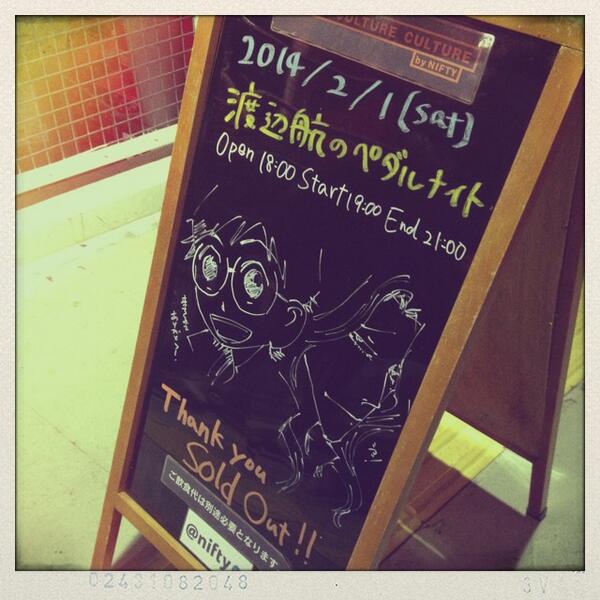 CULTURE CULTURE
by NIFTY
2014/2/1(sat)
渡辺航のペダルナイト
Open 18:00 Start 19:00 End 21:00
Thank you
Sold Out!!
ご飲食代は別途必要となります
@nifty
3 V